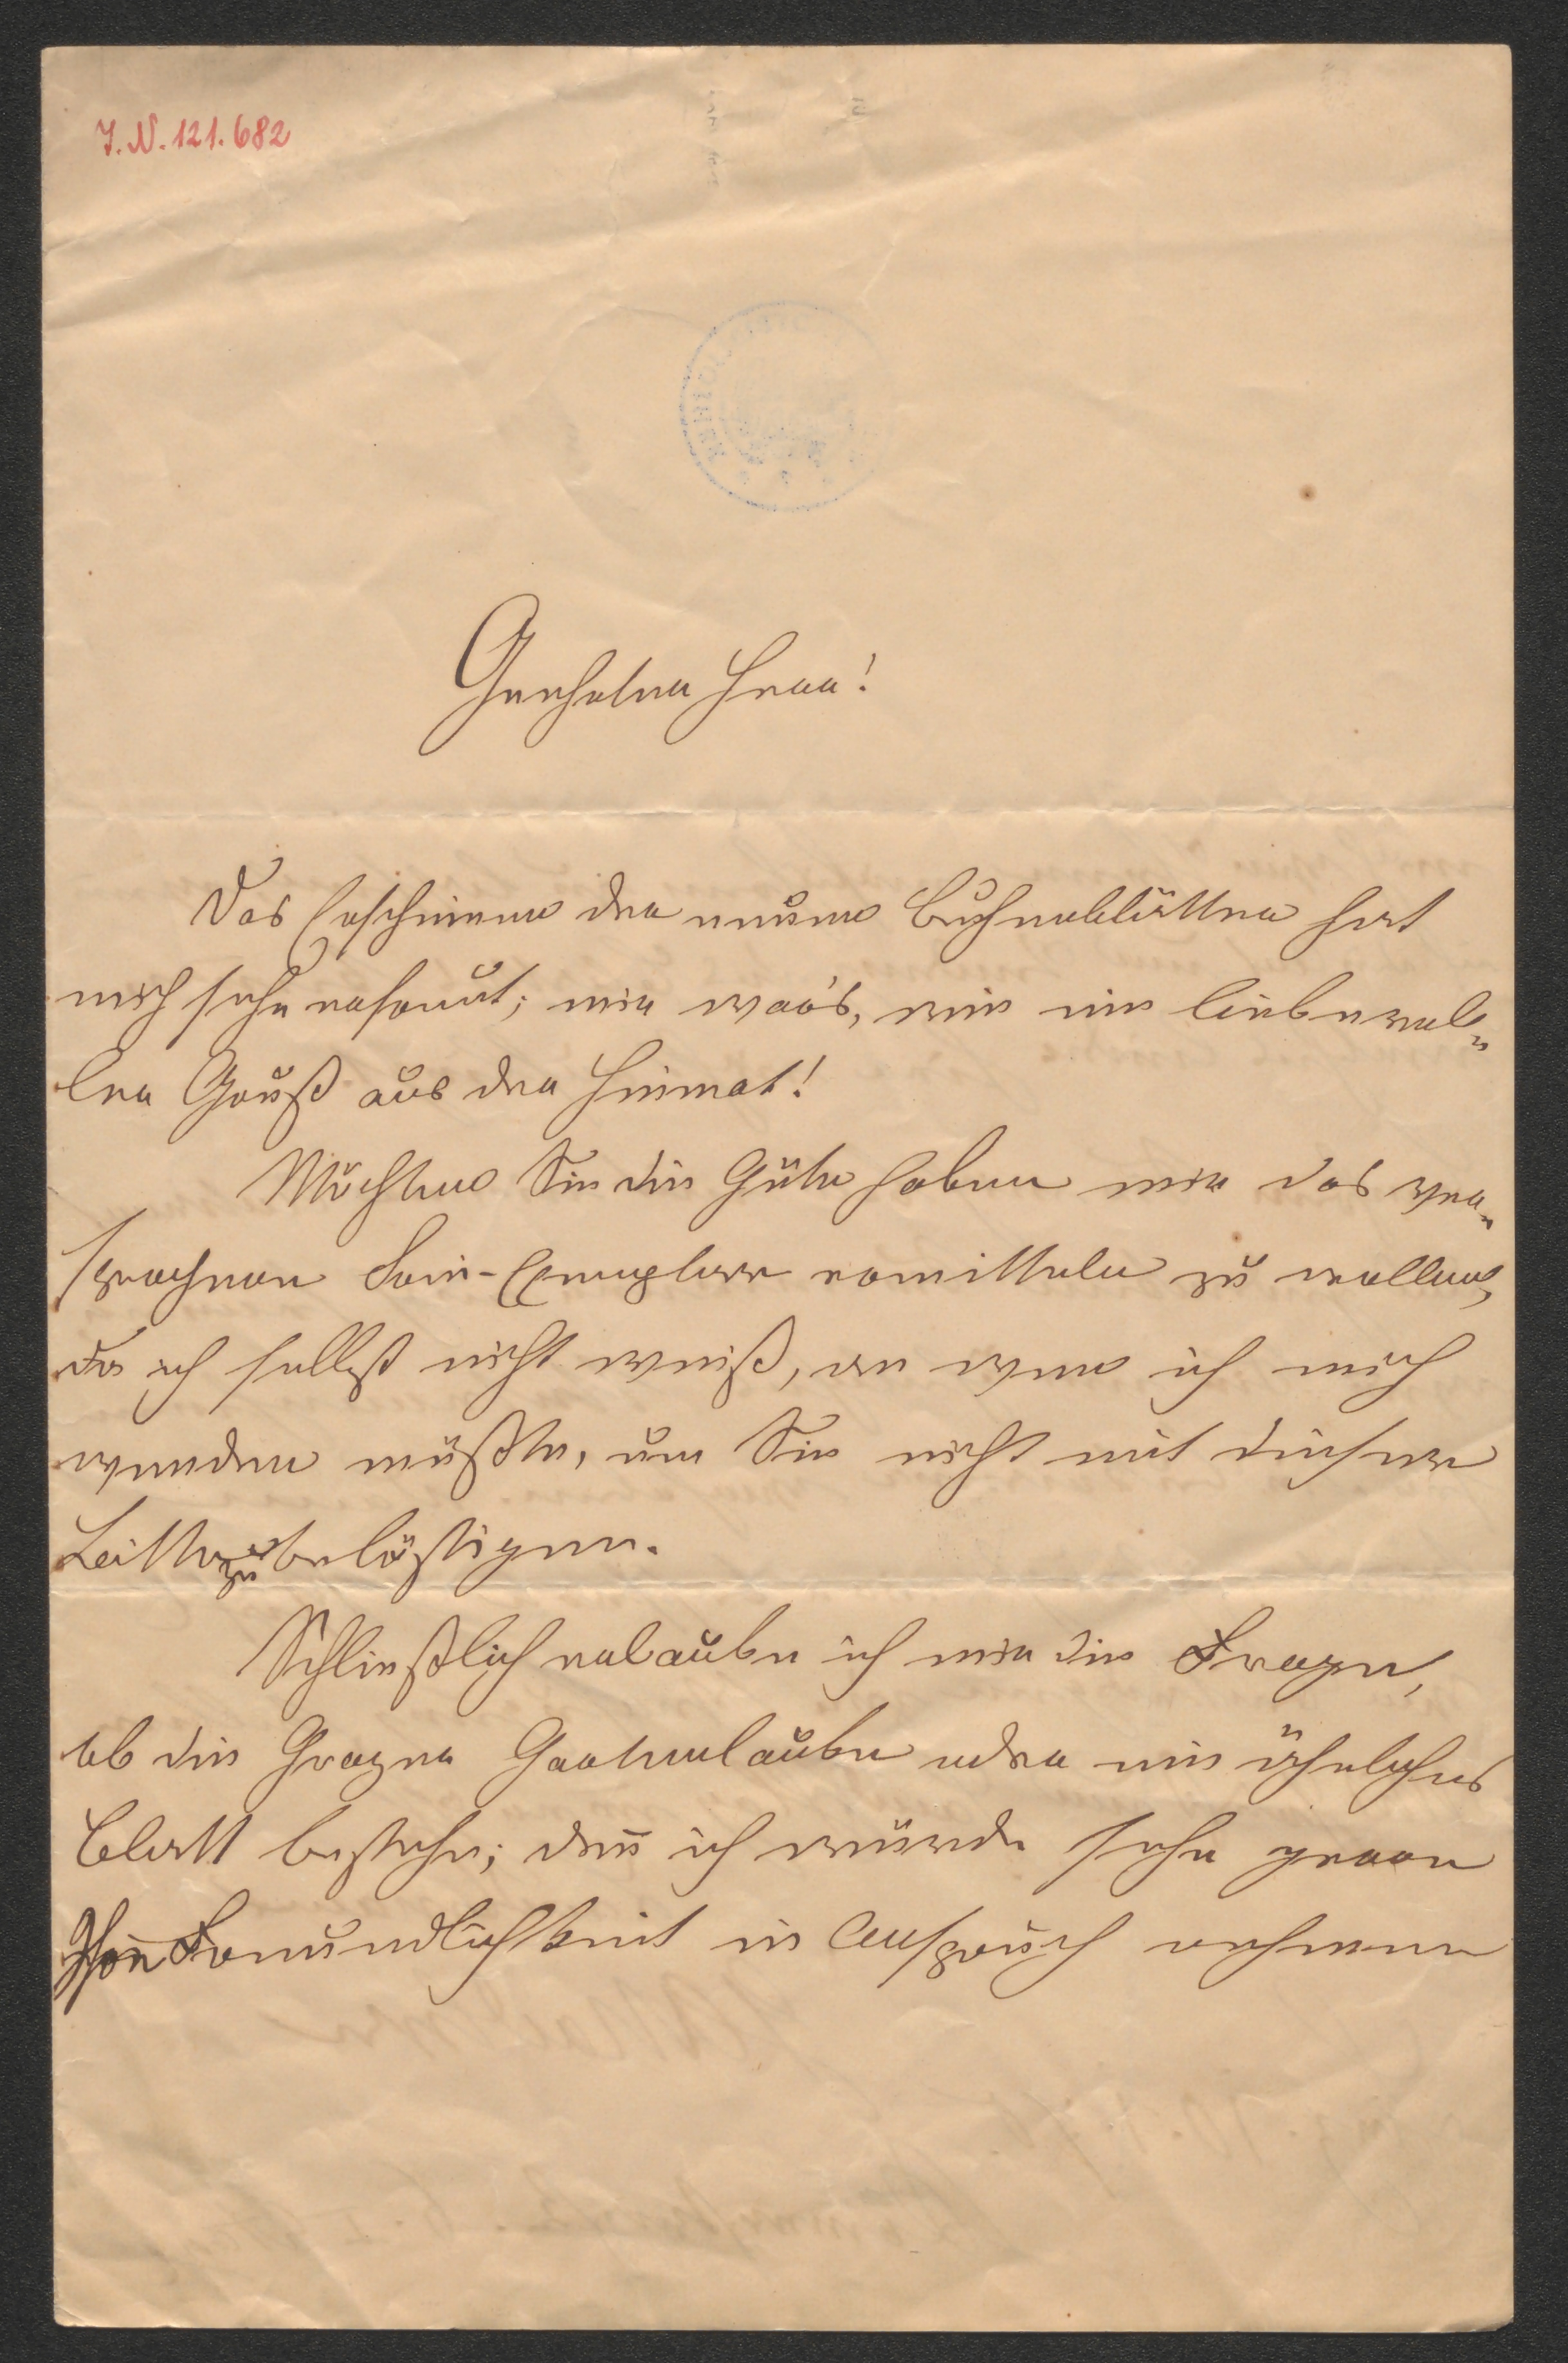 J.N. 121.682
Geehrter Herr!
Das Erscheinen der neuen Bühnenblätter hat
mich sehr erfreut; mir war's, wie ein liebevol„
ler Gruß aus der Heimat!
Möchten Sie die Güte haben mir das ver„
sprochene Frei-Exemplare ermitteln zu wollen,
da ich selbst nicht weiß, an wen ich mich
wenden müßte, um Sie nicht mit dieser
Bitte zu belästigen.
Schließlich erlaube ich mir die Frage,
ob die Grazer Gartenlaube oder ein ähnliches
Blatt bestehe; den̅ ich würde sehr gerne
Ihre Freundlichkeit in Anspruch nehmen